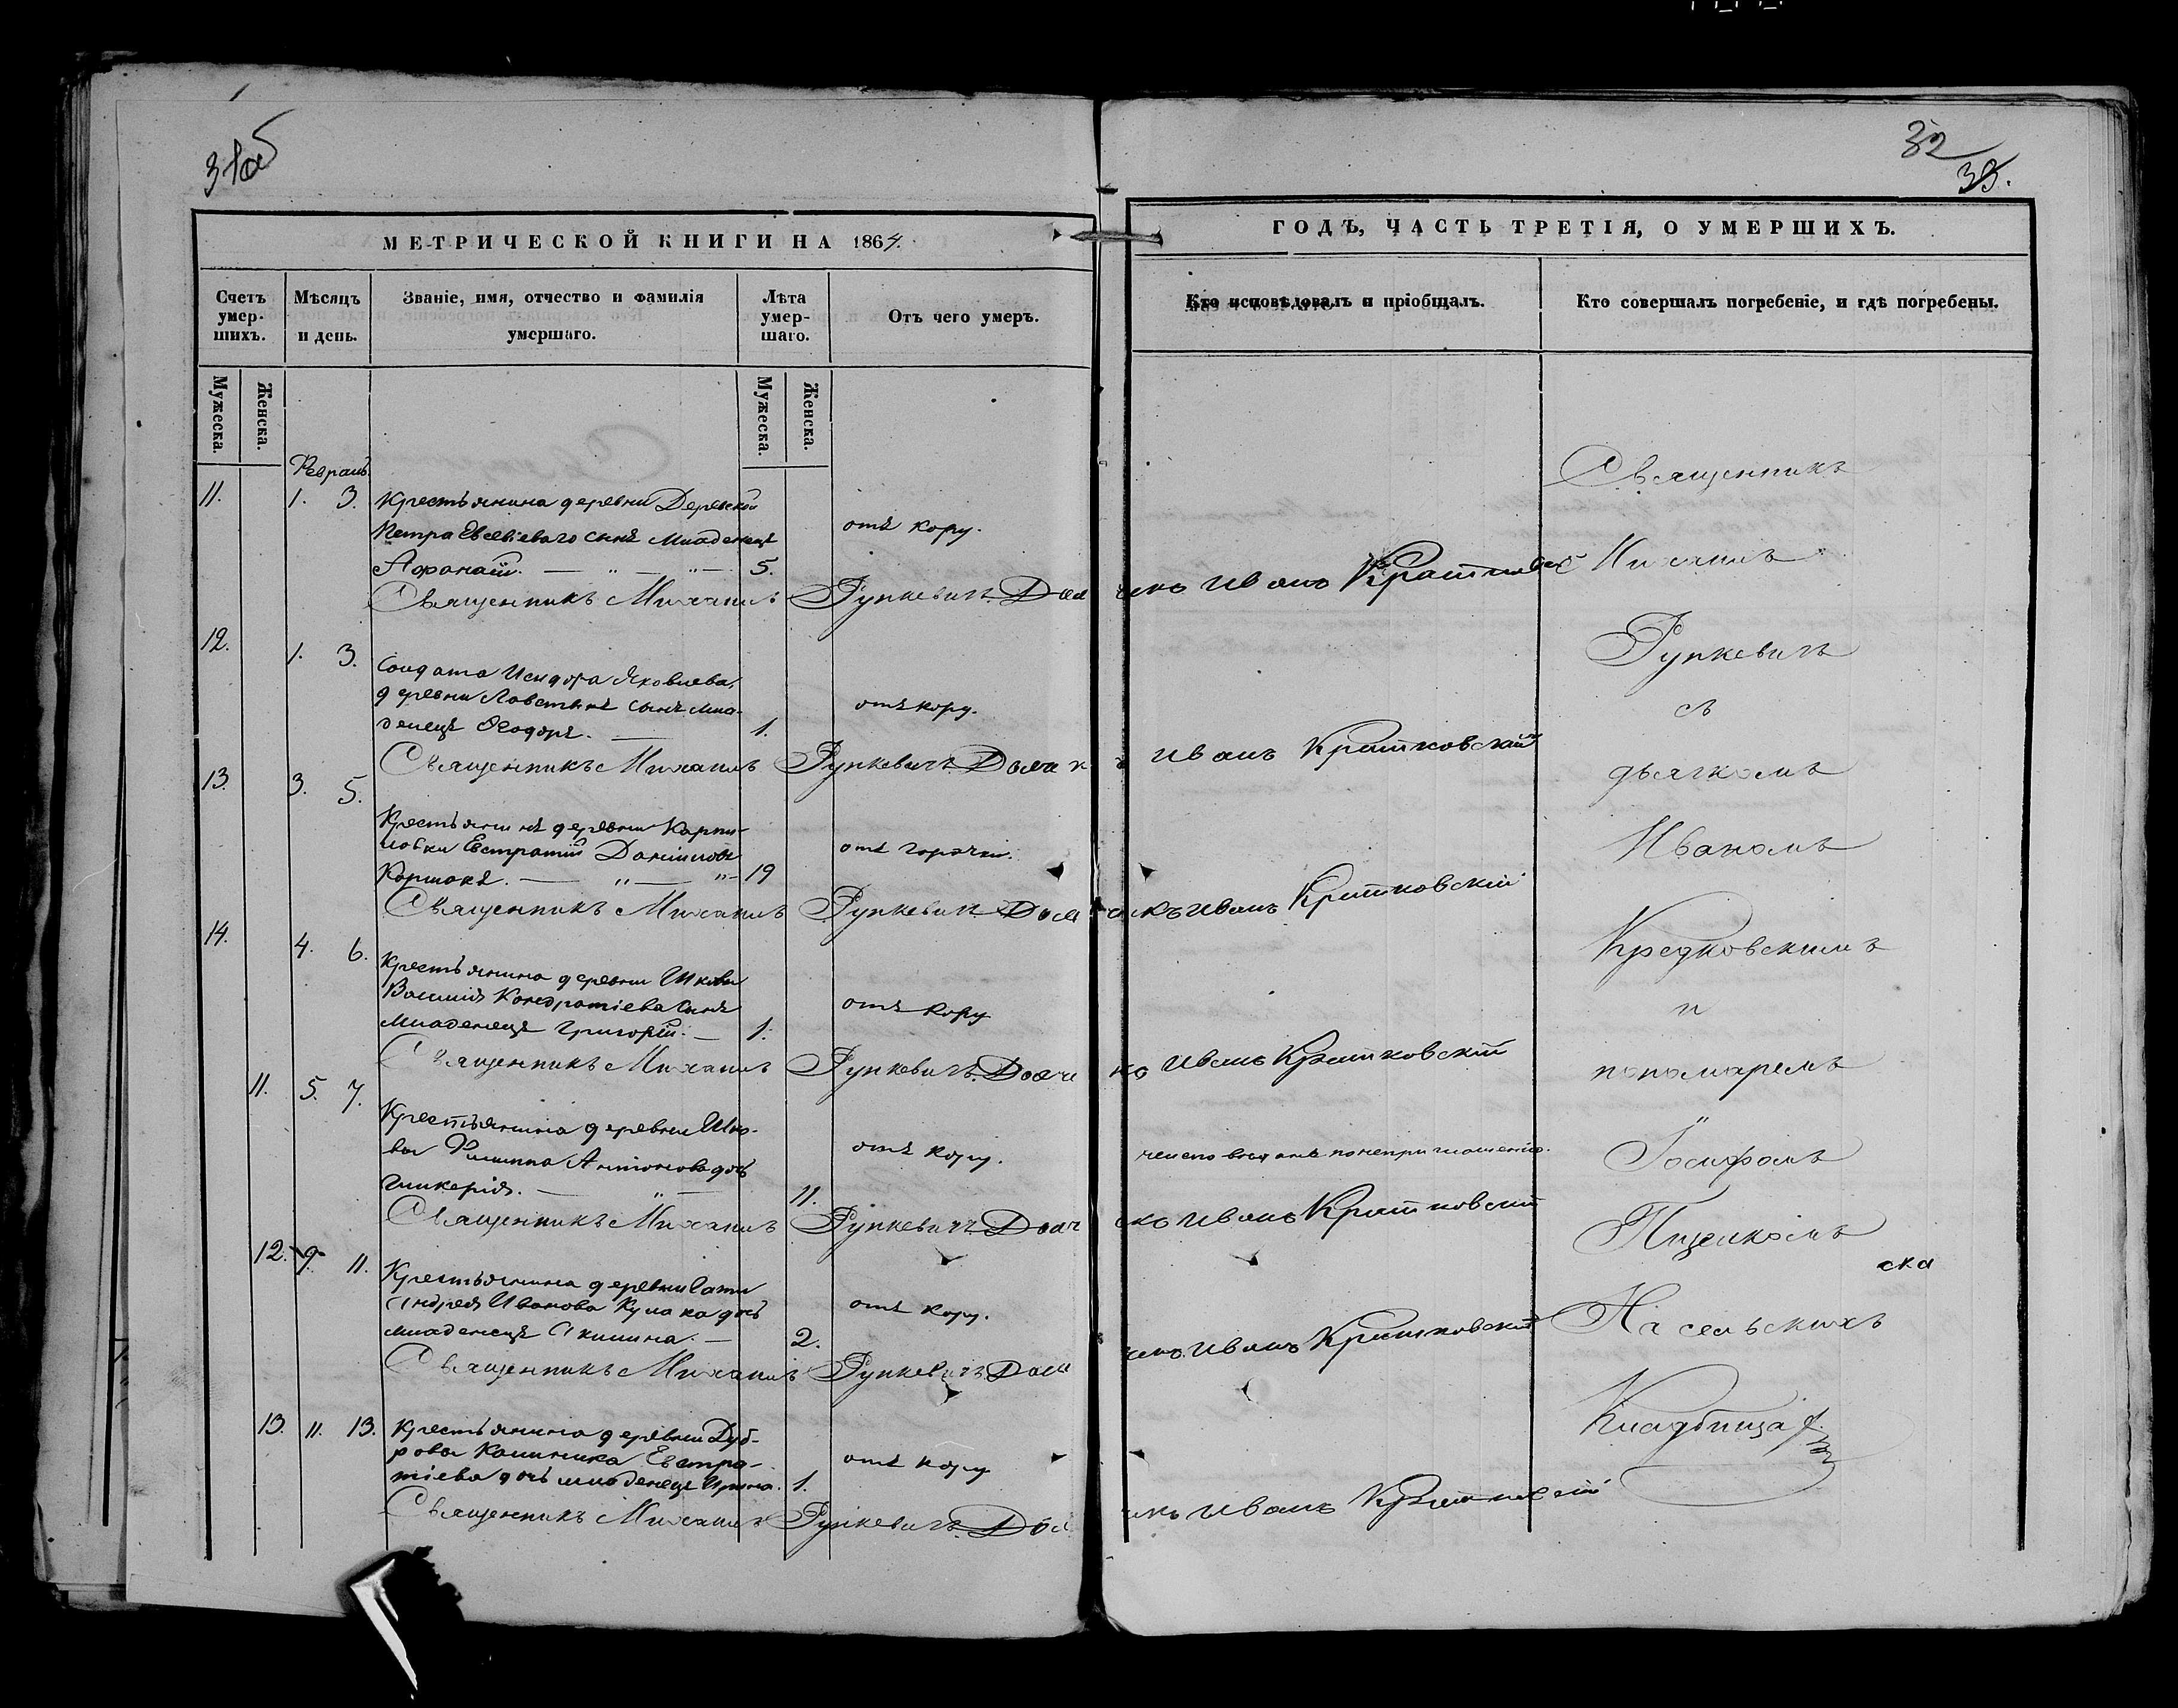 31об
32
33.
МЕТРИЧЕСКОЙ КНИГИ НА 1864.
ГОДЪ, ЧАСТЬ ТРЕТІЯ, О УМЕРШИХЪ.
Счетъ умер-шихъ.
Мѣсяцъ и день.
Званіе, имя, отчество и фамилія умершаго.
Лѣта умер-шаго.
Отъ чего умеръ.
Кто исповѣдовалъ и пріобщалъ.
Кто совершалъ погребеніе, и гдѣ погребены.
Мужеска.
Женска.
Мужеска.
Женска.
Февраль.
11. 1. 3. Крестьянина деревни Деревской
Петра Евсевіеваго сынъ младенецъ отъ кору.
Афанасій. — „ — „ — 5.
Священникъ Михаилъ Рункевичъ. Дьячекъ Иванъ
12. 1. 3. Солдата Исидора Яковлева,
деревни сынъ мла- отъ кору.
денецъ Ѳеодоръ. — 1.
Священникъ Михаилъ Рункевичъ. Дьячекъ Иванъ Кратковскій
13. 3. 5. Крестьянинъ деревни Карпи-
ловки Евстратій Даніиловъ отъ горячки.
Коршакъ. — „ — „ — 19
Священникъ Михаилъ Рункевичъ Дьячекъ Иванъ Кратковскій
14. 4. 6. Крестьянина деревни
Василія Кондратіева сынъ отъ кору
младенецъ Григорій. — 1.
Священникъ Михаилъ Рункевичъ. Дьячекъ Иванъ Кратковскій
11. 5. 7. Крестьянина деревни
Филиппа Антонова дочь отъ кору.
Гликерія. — „ — 11.
Священникъ Михаилъ Рункевичъ Дьячекъ Иванъ Кратковскій
12. 9. 11. Крестьянина деревни
Андрея Иванова Кулака дочь отъ кору.
младенецъ Акилина. — 2.
Священникъ Михаилъ Рункевичъ. Дьячекъ Иванъ Кратковскій
13. 11. 13. Крестьянина деревни Дуб-
ровы Калиника Евстра- отъ кору
тіева дочь младенецъ Ирина. 1.
Священникъ Михаилъ Рункевичъ. Дьячекъ Иванъ Кратковскій
Священникъ
Михаилъ
Рункевичъ
съ
дьячкомъ
Иваномъ
Кредковскимъ
и
пономаремъ
Іосифомъ
На сельскихъ